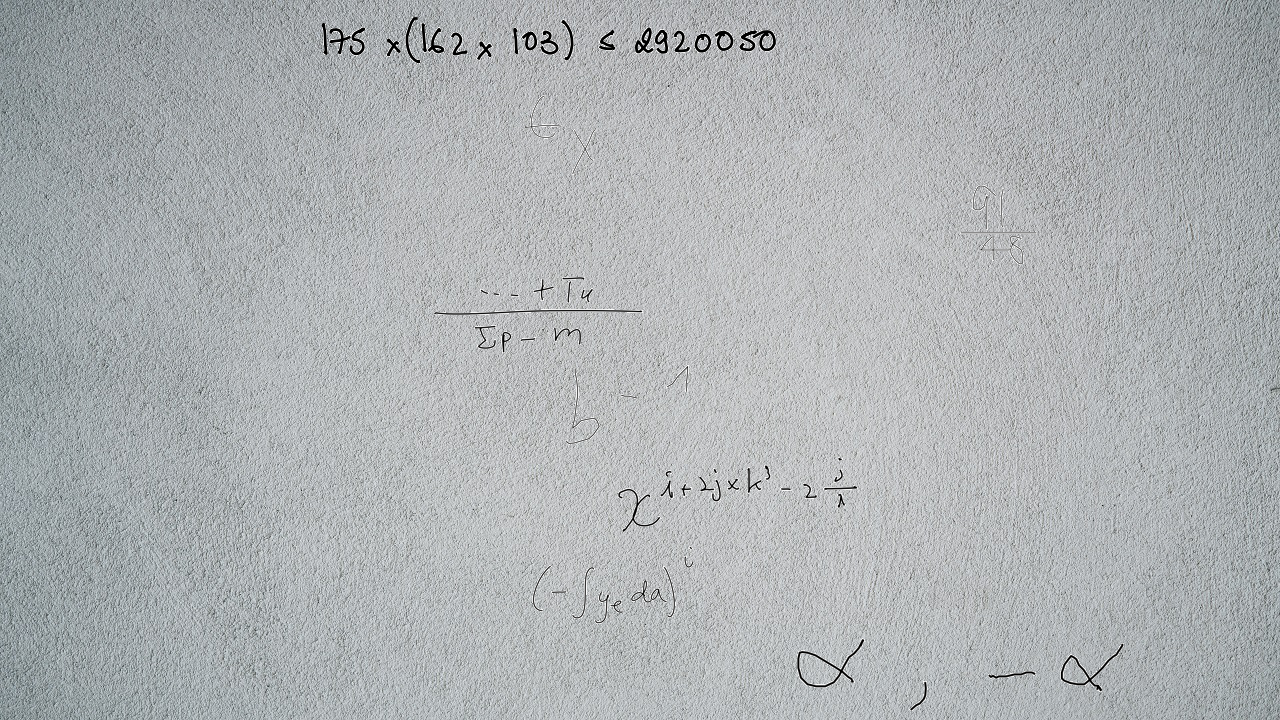 175 ×(162 × 103) ≤ 2920050
91
48
... + Tu
Σp - m
b - 1
x^{i + 2j × k^3 - 2 \frac{j}{λ}}
(-∫y_e da)^i
α , - α